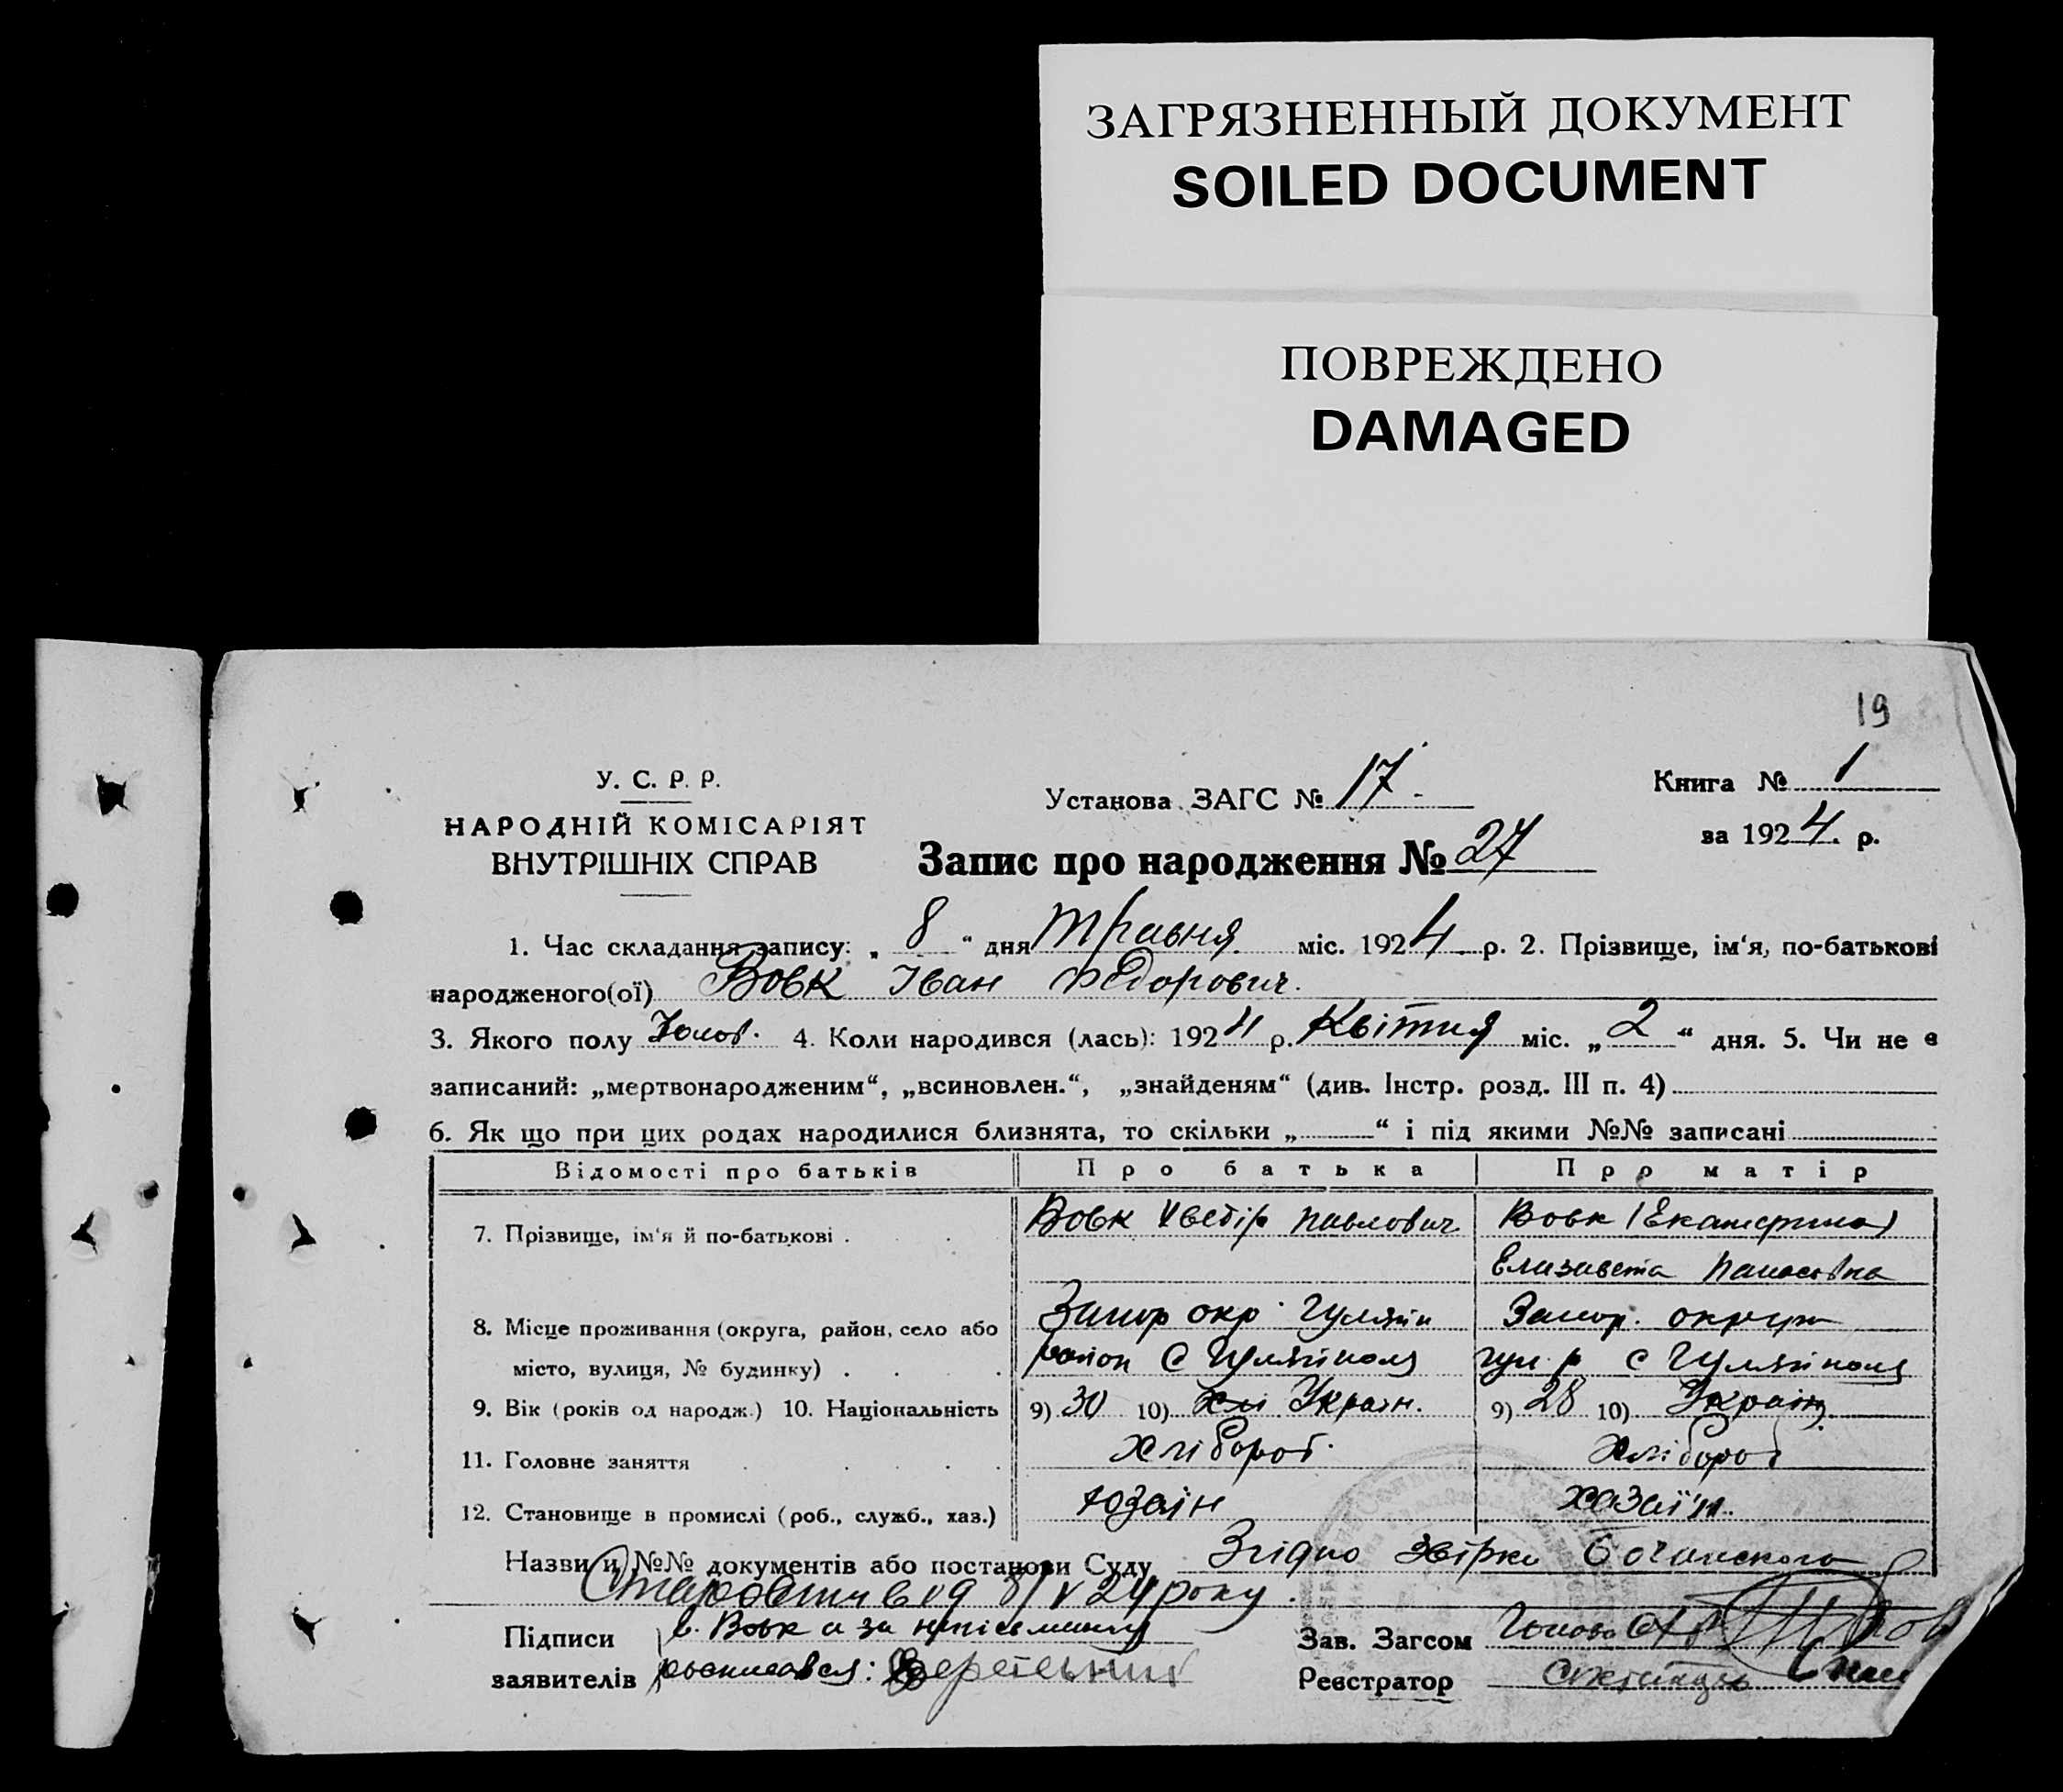 ЗАГРЯЗНЕННЫЙ ДОКУМЕНТ
SOILED DOCUMENT
ПОВРЕЖДЕНО
DAMAGED
19
У. С. Р. Р.
НАРОДНІЙ КОМІСАРІЯТ
ВНУТРІШНІХ СПРАВ
Установа ЗАГС № 17.
Книга № 1
за 1924 р.
Запис про народження № 27
1. Час складання запису: „ 8 “ дня Травня міс. 1924 р. 2. Прізвище, ім‘я, по-батькові
народженого(ої) Вовк Іван Федорович.
3. Якого полу 4. Коли народився (лась): 1924 р. Квітня міс. „ 2 “ дня. 5. Чи не є
записаний: „мертвонародженим“, „всиновлен.“, „знайденям“ (див. Інстр. розд. III п. 4)
6. Як що при цих родах народилися близнята, то скільки „ “ і під якими №№ записані
Відомості про батьків Про батька Про матір
7. Прізвище, ім‘я й по-батькові . Вовк Хведір Павлович Вовк (Екатерина)
Елизавета Панасівна
8. Місце проживання (округа, район, село або Запор окр. Гуляйп Запор. округи
місто, вулиця, № будинку) . район С Гуляйполя гул. р С Гуляйполя
9. Вік (років од народж.) 10. Національність 9) 30 10) Україн. 9) 28 10) Україн.
11. Головне заняття Хлібороб. Хлібороб
12. Становище в промислі (роб., служб., хаз.) хазаїн.
Назви и №№ документів або постанови Суду Згідно
од 8/V 24 року.
Підписи Вовк а за
заявителів
Зав. Загсом
Реєстратор